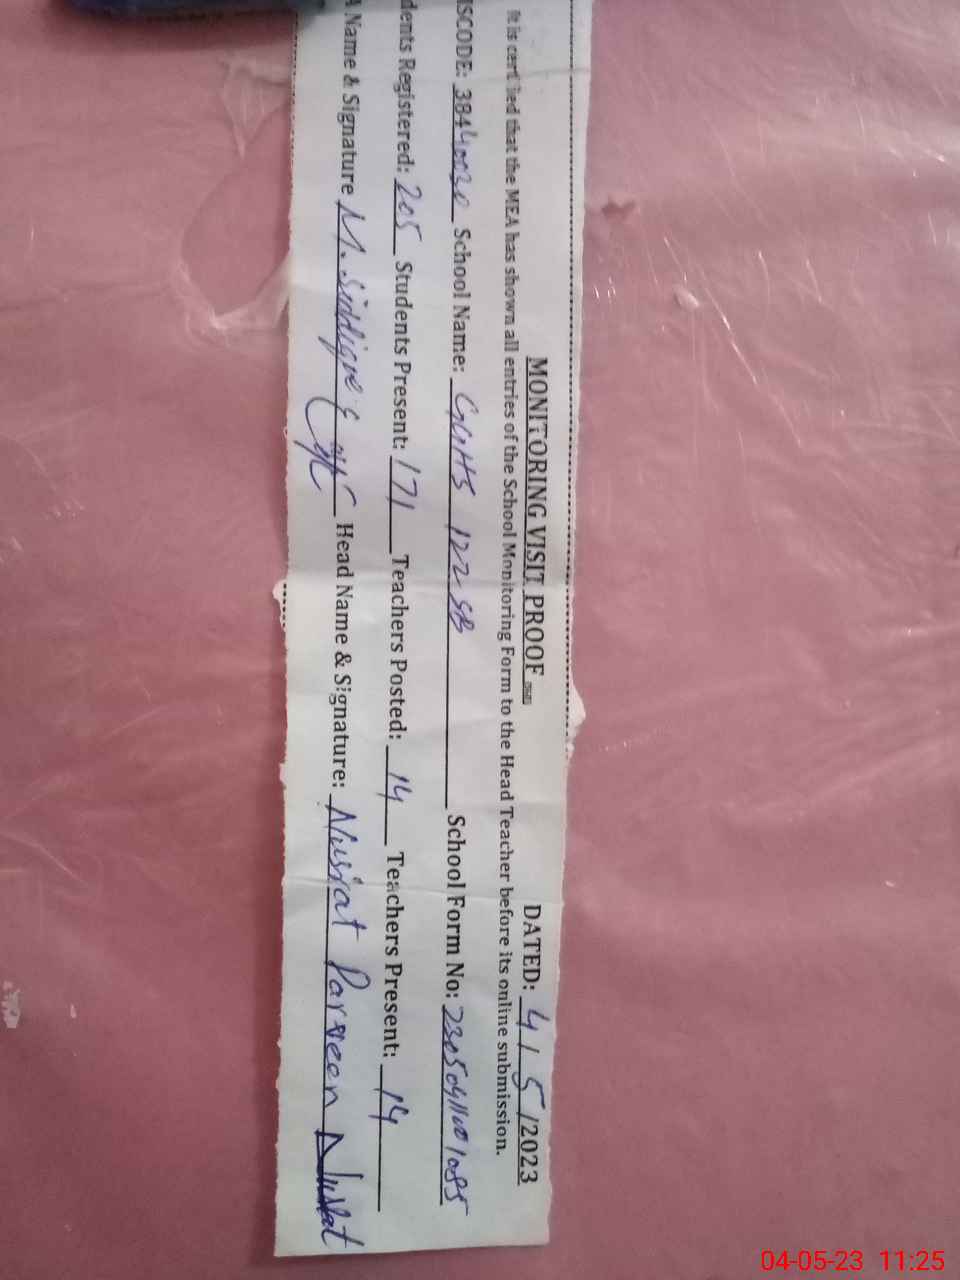 MONITORING VISIT PROOF DATED: 4/5/2023
It is certified that the MEA has shown all entries of the School Monitoring Form to the Head Teacher before its online submission.
ISCODE: 38440030 School Name: GGHS 122 SB School Form No:
dents Registered: 205 Students Present: 171 Teachers Posted: 14 Teachers Present: 14
A Name & Signature M. Siddique Head Name & Signature: Nusrat Parveen Nusrat
04-05-23 11:25